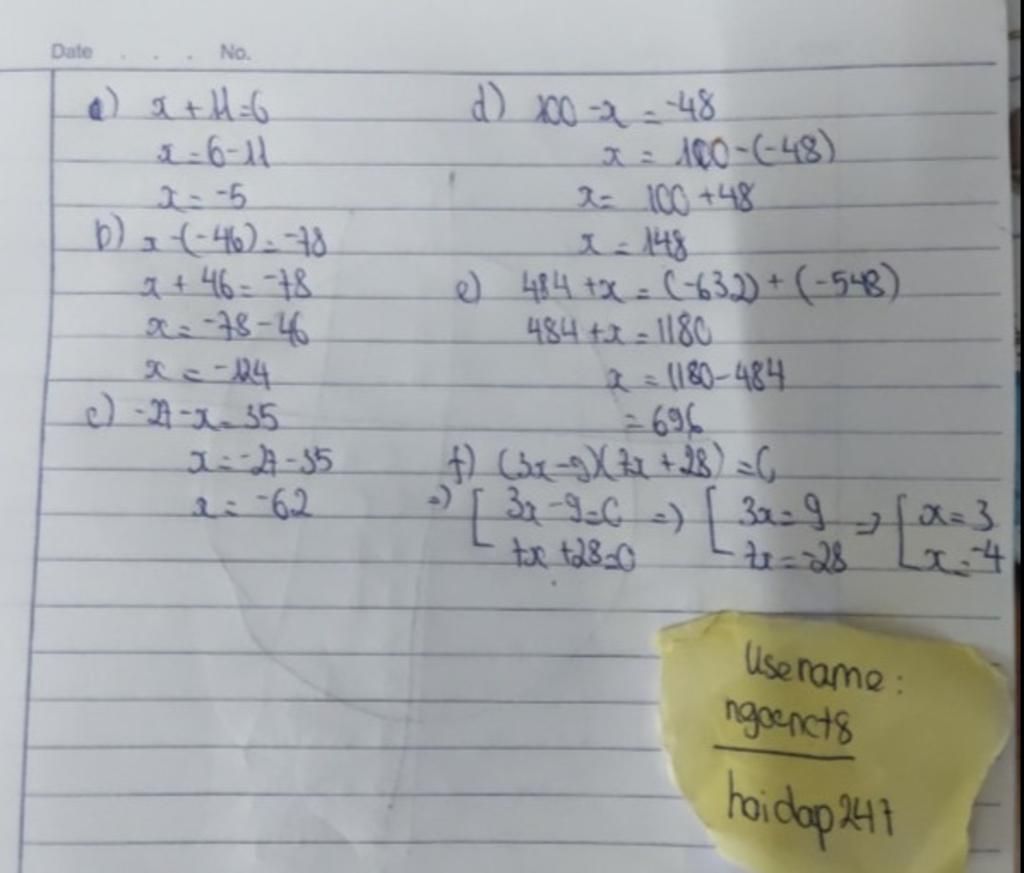 Date . . . No.
a) x + 11 = 6
x = 6 - 11
x = -5
b) x - (-46) = -78
x + 46 = -78
x = -78 - 46
x = -124
c) -27 - x = 35
x = -27 - 35
x = -62
d) 100 - x = -48
x = 100 - (-48)
x = 100 + 48
x = 148
e) 484 + x = (-632) + (-548)
484 + x = 1180
x = 1180 - 484
= 696
f) (3x - 9)(7x + 28) = 0
=> [ 3x - 9 = 0 => [ 3x = 9 => [ x = 3
7x + 28 = 0 7x = -28 x = -4
Usename:
ngocnct8
hoidap247